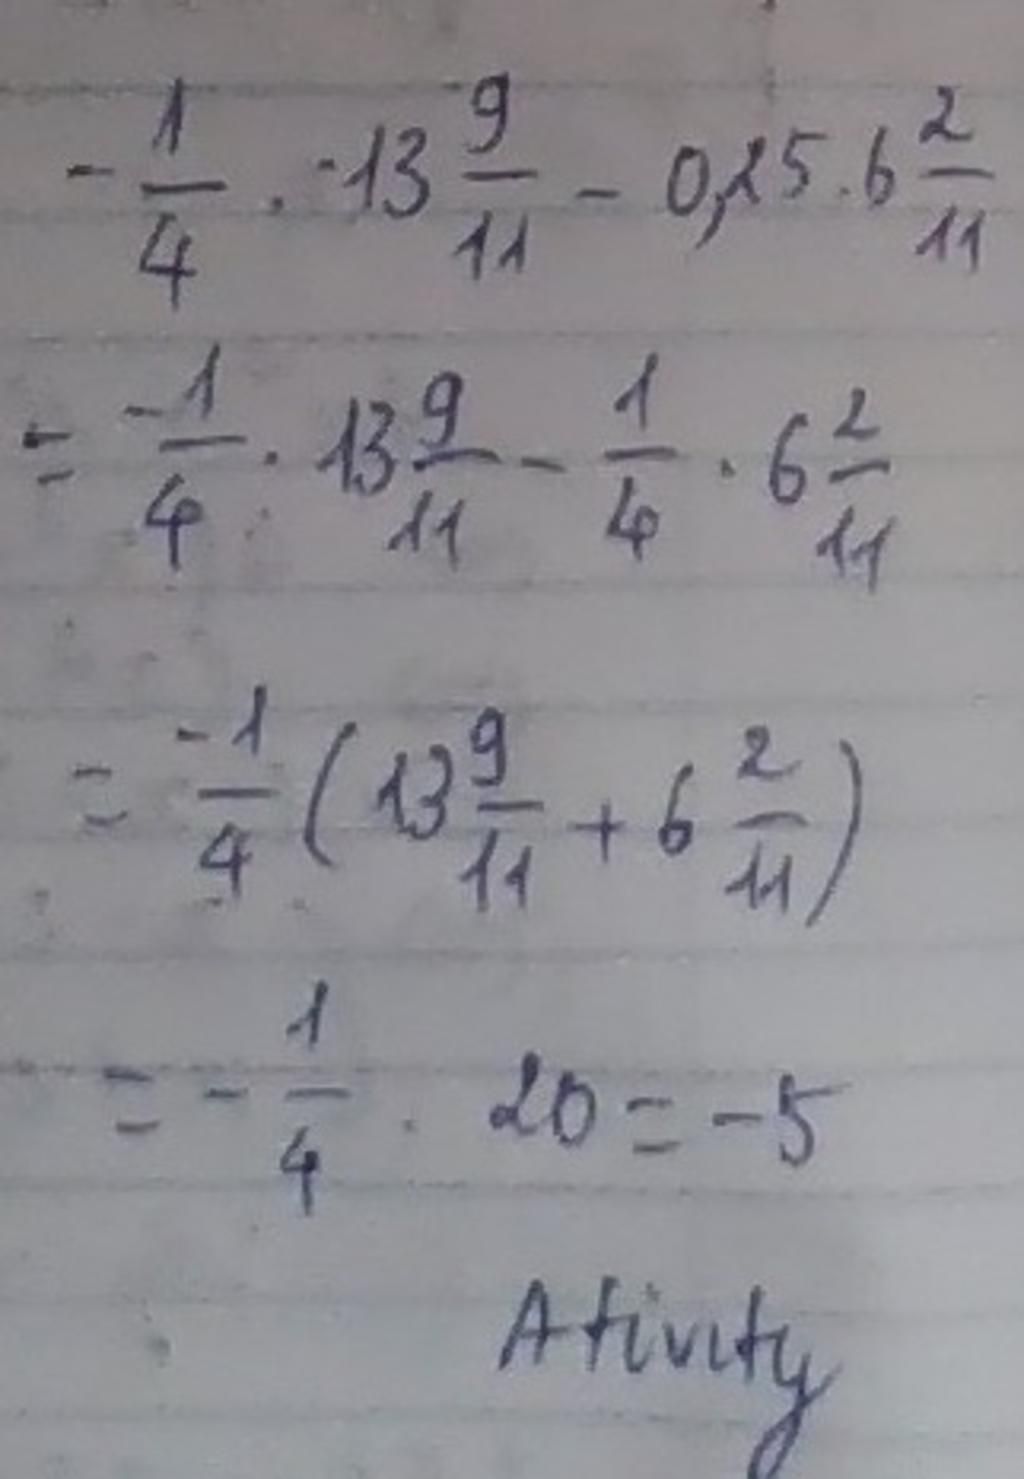 - 1/4 . -13 9/11 - 0,25 . 6 2/11
= -1/4 . 13 9/11 - 1/4 . 6 2/11
= -1/4 ( 13 9/11 + 6 2/11 )
= - 1/4 . 20 = -5
Ativity